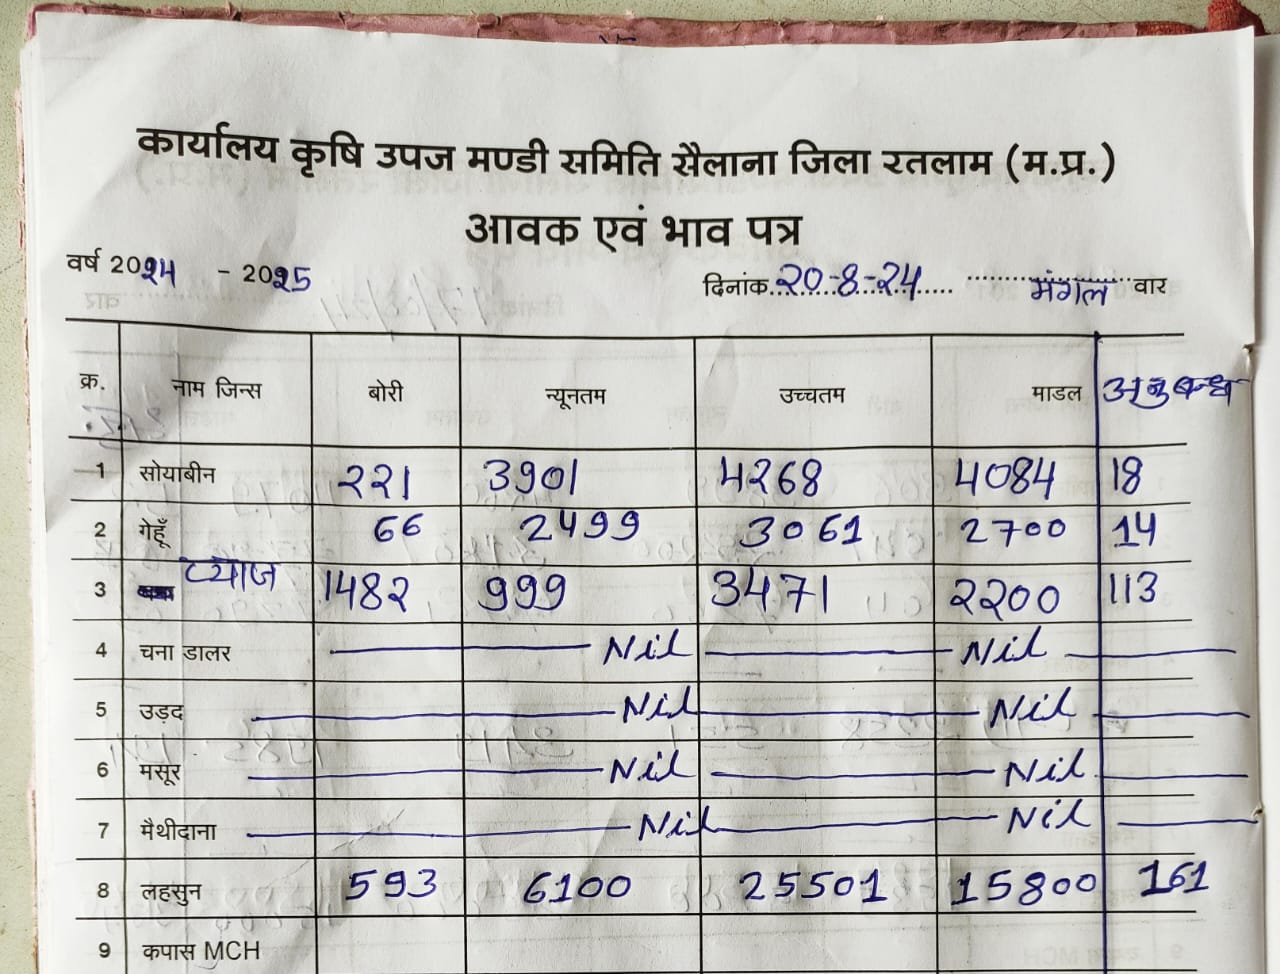 कार्यालय कृषि उपज मण्डी समिति सैलाना जिला रतलाम (म.प्र.)
आवक एवं भाव पत्र
वर्ष 2024 - 2025 दिनांक 20-8-24 मंगल वार
क्र. नाम जिन्स बोरी न्यूनतम उच्चतम माडल अनुबन्ध
1 सोयाबीन 221 3901 4268 4084 18
2 गेहूँ 66 2499 3061 2700 14
3 प्याज 1482 999 3471 2200 113
4 चना डालर Nil Nil
5 उड़द Nil Nil
6 मसूर Nil Nil
7 मैथीदाना Nil Nil
8 लहसुन 593 6100 25501 15800 161
9 कपास MCH